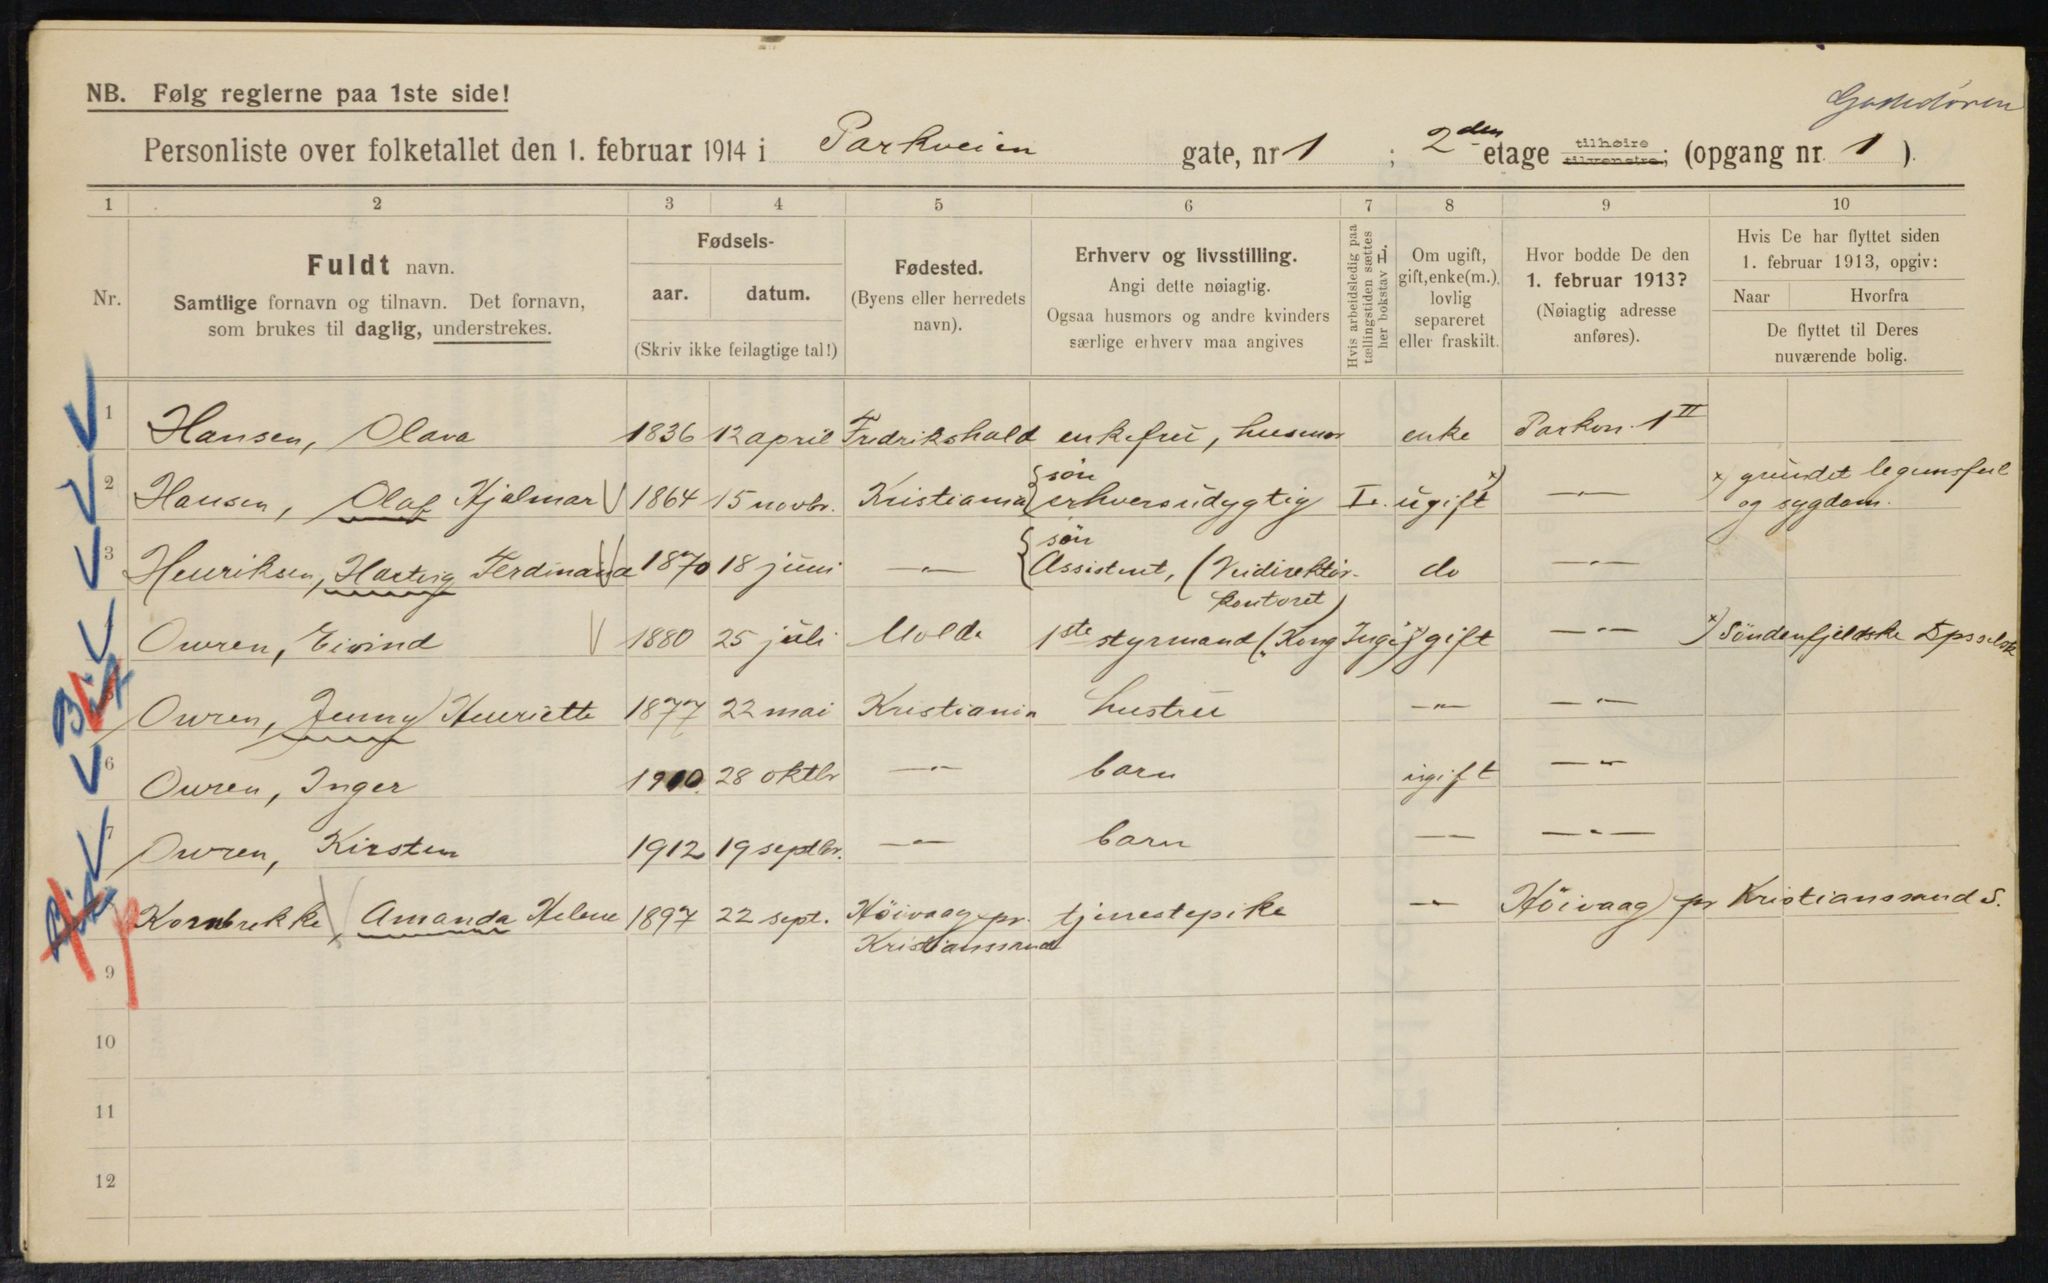 NB. Følg reglerne paa 1ste side!
Gadedøren
Personliste over folketallet den 1. februar 1914 i Parkveien gate, nr 1 ; 2den etage tilhøire tilvenstre; (opgang nr. 1 ).
1 2 3 4 5 6 7 8 9 10
Nr.
Fuldt navn.
Samtlige fornavn og tilnavn. Det fornavn,
som brukes til daglig, understrekes.
Fødsels-
aar. datum.
(Skriv ikke feilagtige tal!)
Fødested.
(Byens eller herredets
navn).
Erhverv og livsstilling.
Angi dette nøiagtig.
Ogsaa husmors og andre kvinders
særlige erhverv maa angives
Hvis arbeidsledig paa
tællingstiden sættes
her bokstav L.
Om ugift,
gift, enke(m.),
lovlig
separeret
eller fraskilt.
Hvor bodde De den
1. februar 1913?
(Nøiagtig adresse
anføres).
Hvis De har flyttet siden
1. februar 1913, opgiv:
Naar Hvorfra
De flyttet til Deres
nuværende bolig.
1 Hansen, Olava 1836 12 april Fredrikshald enkefru, husmor enke Parkvn. 1 II
2 Hansen, Olaf Hjalmar 1864 15 novbr. Kristiania { søn erhversudygtig L. ugift x) —"— x) grundet legemsfeil
og sygdom.
3 Henriksen, Hartvig Ferdinand 1870 18 juni —"— { søn Assistent, (Veidirektør- do —"—
kontoret)
Owren, Eivind 1880 25 juli Molde 1ste styrmand ("Kong Inge") x) gift —"— x) Søndenfjeldske Dpsselsk
5 Owren, Jenny Henriette 1877 22 mai Kristiania hustru —"— —"—
6 Owren, Inger 1910 28 oktbr —"— barn ugift —"—
7 Owren, Kirsten 1912 19 septbr. —"— barn — — —"—
Kornbrekke, Amanda Helene 1897 22 sept. Höivaag pr. tjenestepike —"— Höivaag pr Kristianssand S.
Kristianssand
9
10
11
12